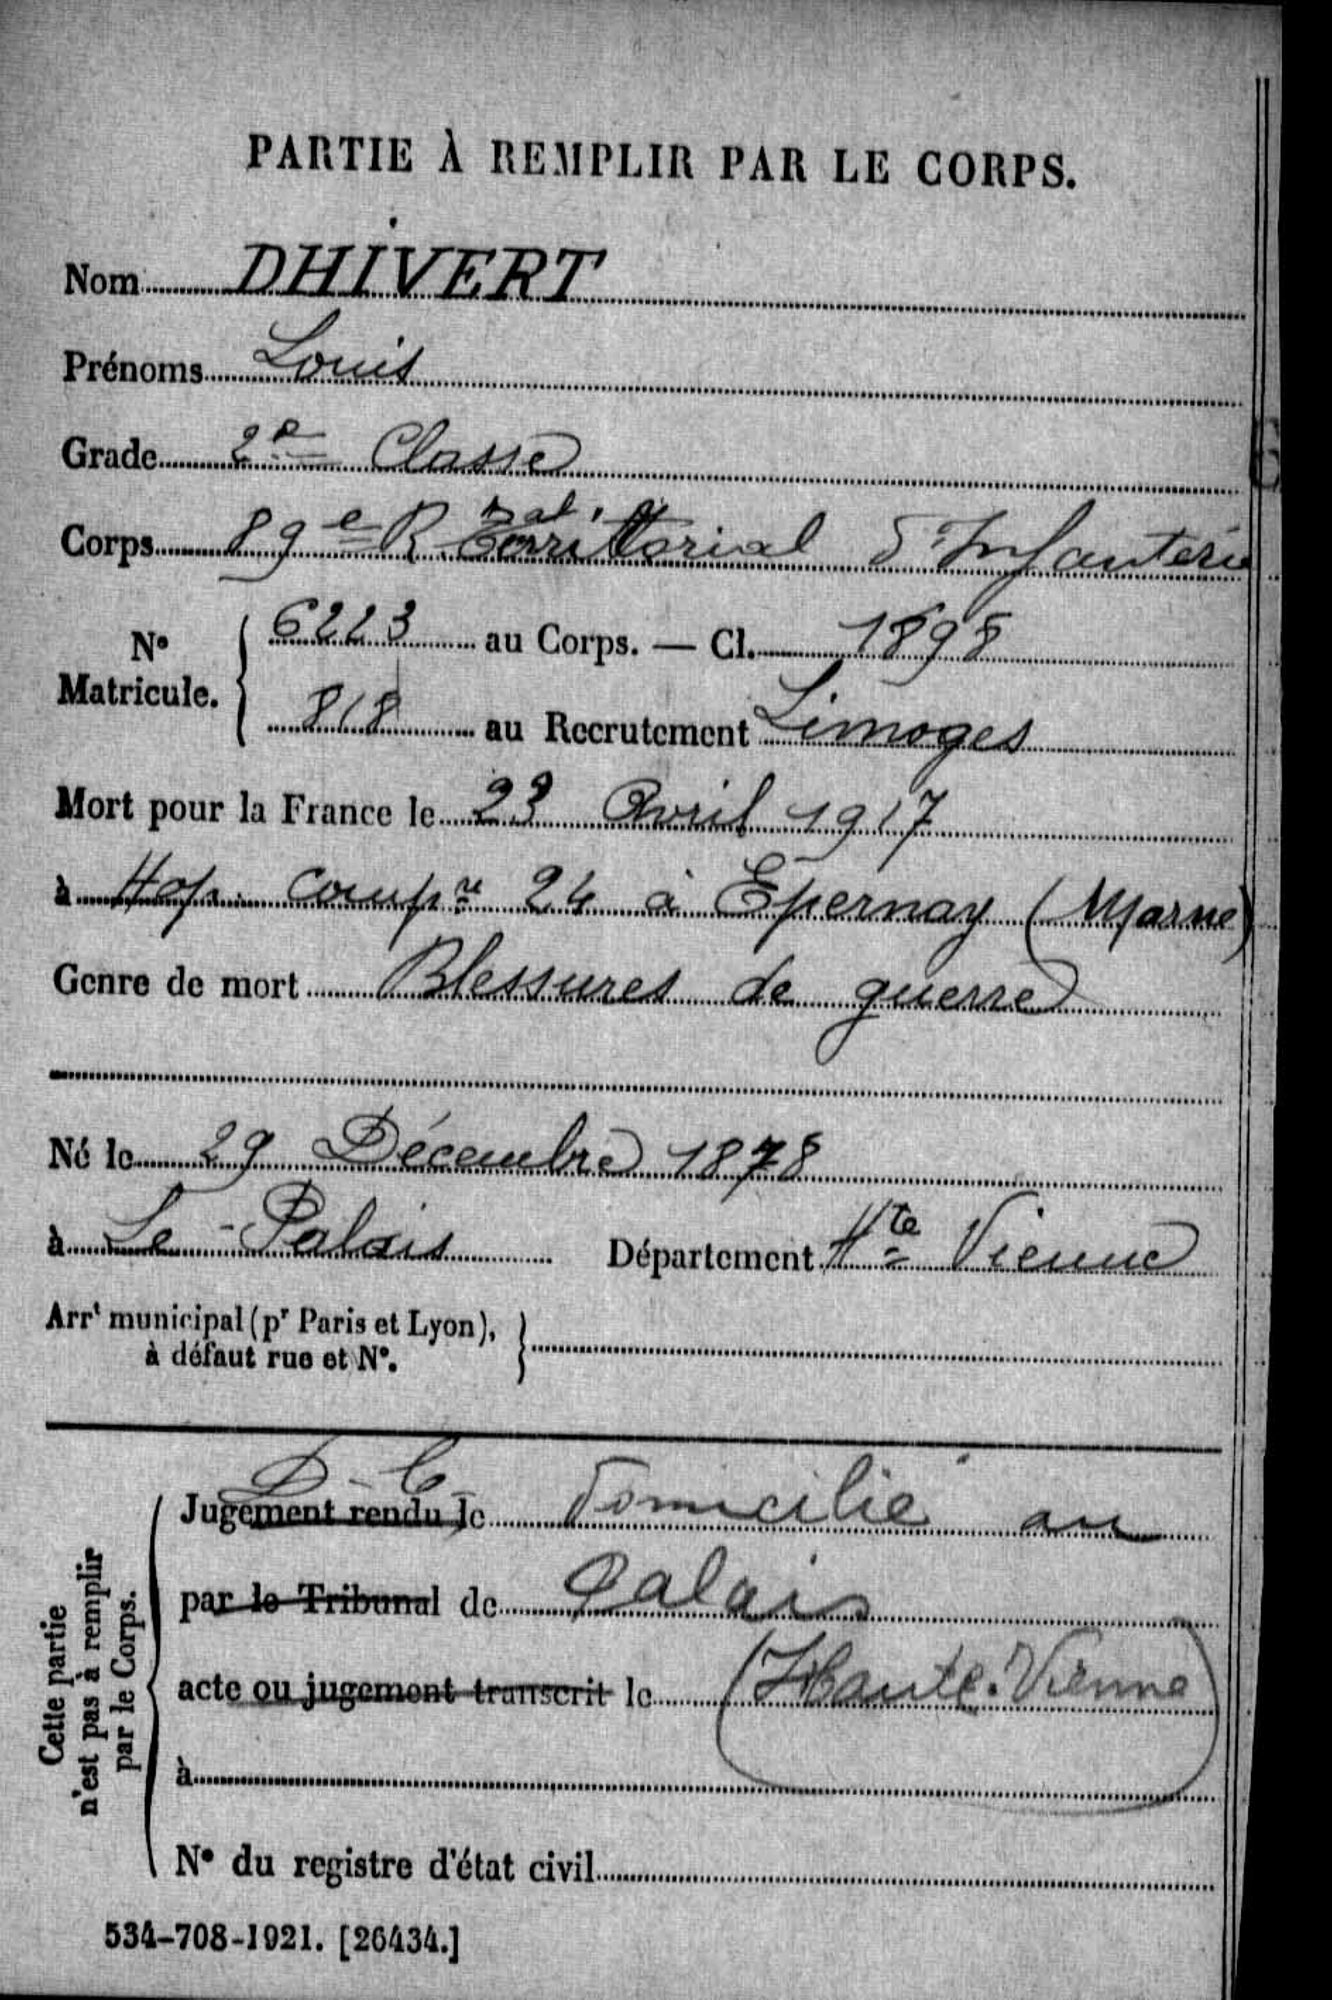 PARTIE À REMPLIR PAR LE CORPS.
Nom DHIVERT
Prénoms Louis
Grade 2e Classe
Corps 89e R. Territorial d'Infanterie
N° Matricule. 6223 au Corps. — Cl. 1898
818 au Recrutement Limoges
Mort pour la France le 23 Avril 1917
à Hop. compre 24 à Épernay (Marne)
Genre de mort Blessures de guerre
Né le 29 Décembre 1878
à Le-Palais Département Hte Vienne
Arrt municipal (pr Paris et Lyon),
à défaut rue et N°.
Cette partie
n'est pas à remplir
par le Corps.
D-C
Jugement rendu le domicilié au
par le Tribunal de Palais
acte ou jugement transcrit le (Haute-Vienne)
à
N° du registre d'état civil
534-708-1921. [26434.]